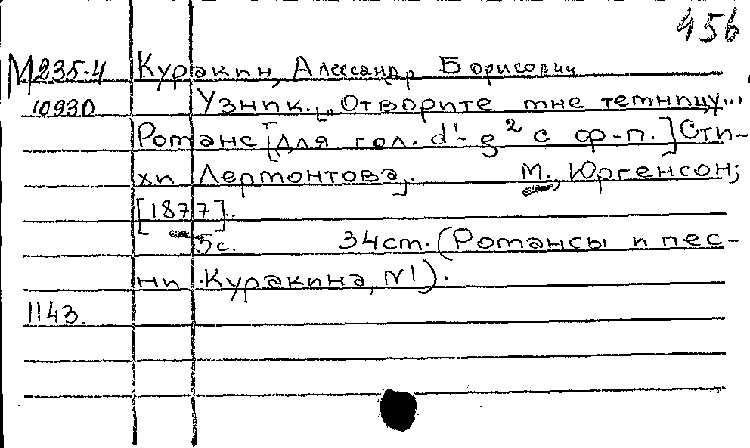 456
М235-4 Куракин, Александр Борисович
10930 Узник. „Отворите мне темницу...
Романс [для гол. d¹-g² с ф-п.] Сти-
хи Лермонтова. М., Юргенсон;
[1877].
5с. 34ст. (Романсы и пес-
ни Куракина, №1).
1143.